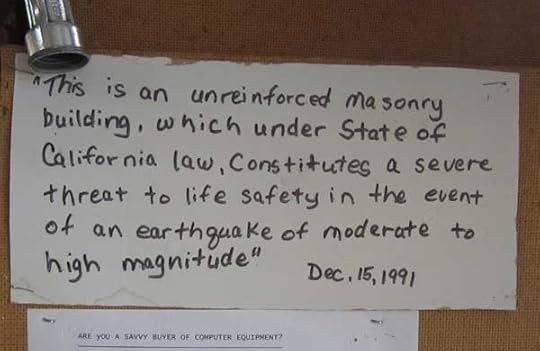 "This is an unreinforced masonry
building, which under State of
California law, Constitutes a severe
threat to life safety in the event
of an earthquake of moderate to
high magnitude"
Dec. 15, 1991
ARE YOU A SAVVY BUYER OF COMPUTER EQUIPMENT?